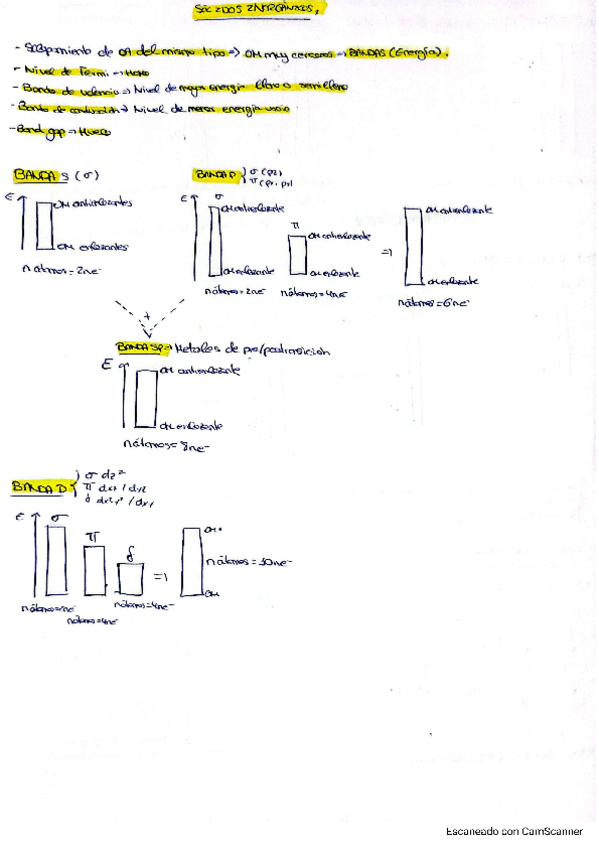 SÓLIDOS INORGÁNICOS,
- Solapamiento de OA del mismo tipo => OM muy cercanos -> BANDAS (Energía).
- Nivel de Fermi -> HOMO
- Banda de valencia -> Nivel de mayor energía lleno o semilleno
- Banda de conducción -> Nivel de menos energía vacío
- Band gap -> Hueco
BANDA S (σ)
BANDA P } σ (pz)
π (px, py)
E
OM antienlazantes
OM enlazantes
n átomos = 2n e⁻
E σ
OM antienlazante
OM enlazante
n átomos = 2n e⁻
π
OM antienlazante
OM enlazante
n átomos = 4n e⁻
=>
OM antienlazante
OM enlazante
n átomos = 6n e⁻
+
BANDA SP -> Metales de pre/postransición
E
OM antienlazante
OM enlazante
n átomos = 8n e⁻
BANDA D } σ dz²
π dxz / dyz
δ dx²-y² / dxy
E σ π δ =>
OM*
n átomos = 10n e⁻
OM
n átomos = 4n e⁻
n átomos = 4n e⁻
Escaneado con CamScanner